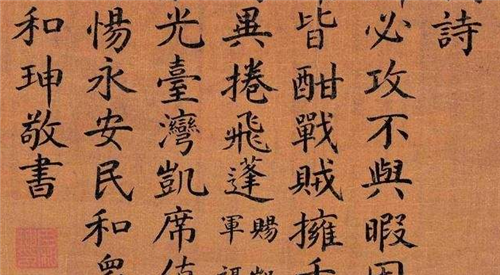 詩
必攻不與暇
皆酣戰賊擁
異捲飛蓬
賜
軍
光臺灣凱席
惕永安民和眾
和珅敬書